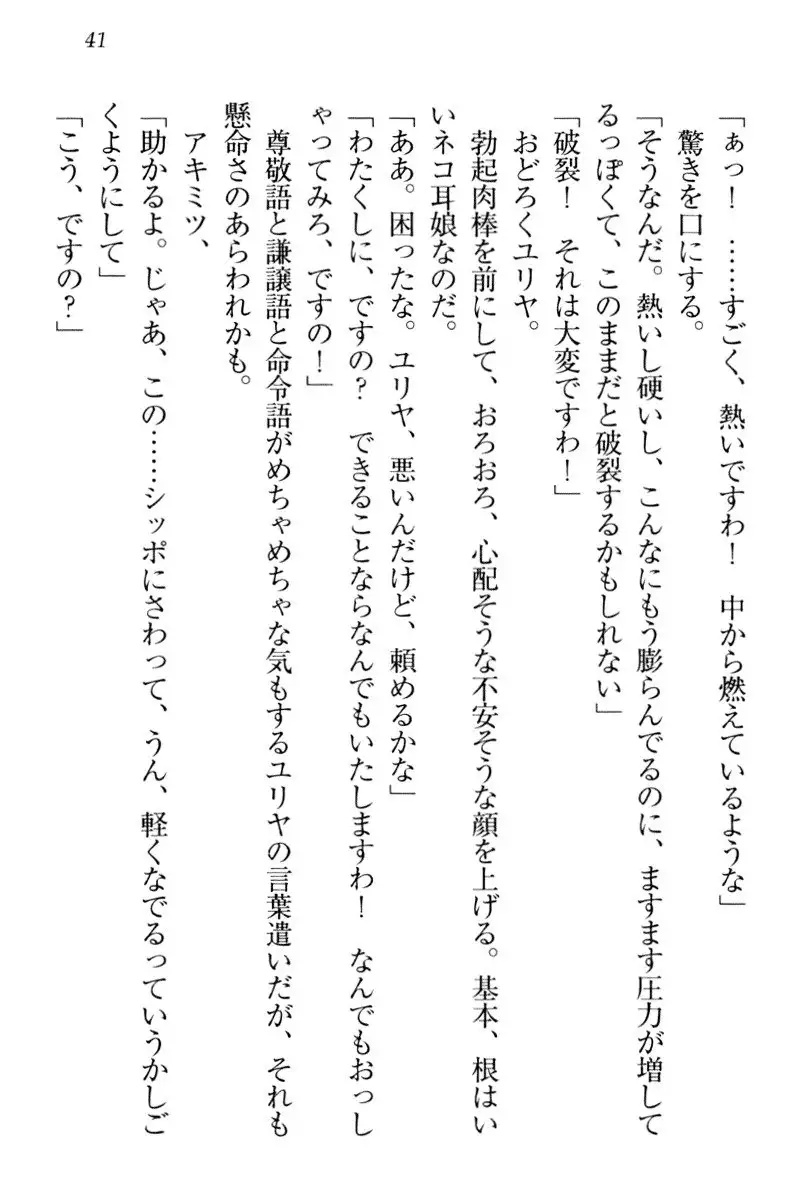 41
「ぁっ！　……すごく、熱いですわ！　中から燃えているような」
驚きを口にする。
「そうなんだ。熱いし硬いし、こんなにもう膨らんでるのに、ますます圧力が増して
るっぽくて、このままだと破裂するかもしれない」
「破裂！　それは大変ですわ！」
おどろくユリヤ。
勃起肉棒を前にして、おろおろ、心配そうな不安そうな顔を上げる。基本、根はい
いネコ耳娘なのだ。
「ああ。困ったな。ユリヤ、悪いんだけど、頼めるかな」
「わたくしに、ですの？　できることならなんでもいたしますわ！　なんでもおっし
ゃってみろ、ですの！」
尊敬語と謙譲語と命令語がめちゃめちゃな気もするユリヤの言葉遣いだが、それも
懸命さのあらわれかも。
アキミツ、
「助かるよ。じゃあ、この……シッポにさわって、うん、軽くなでるっていうかしご
くようにして」
「こう、ですの？」